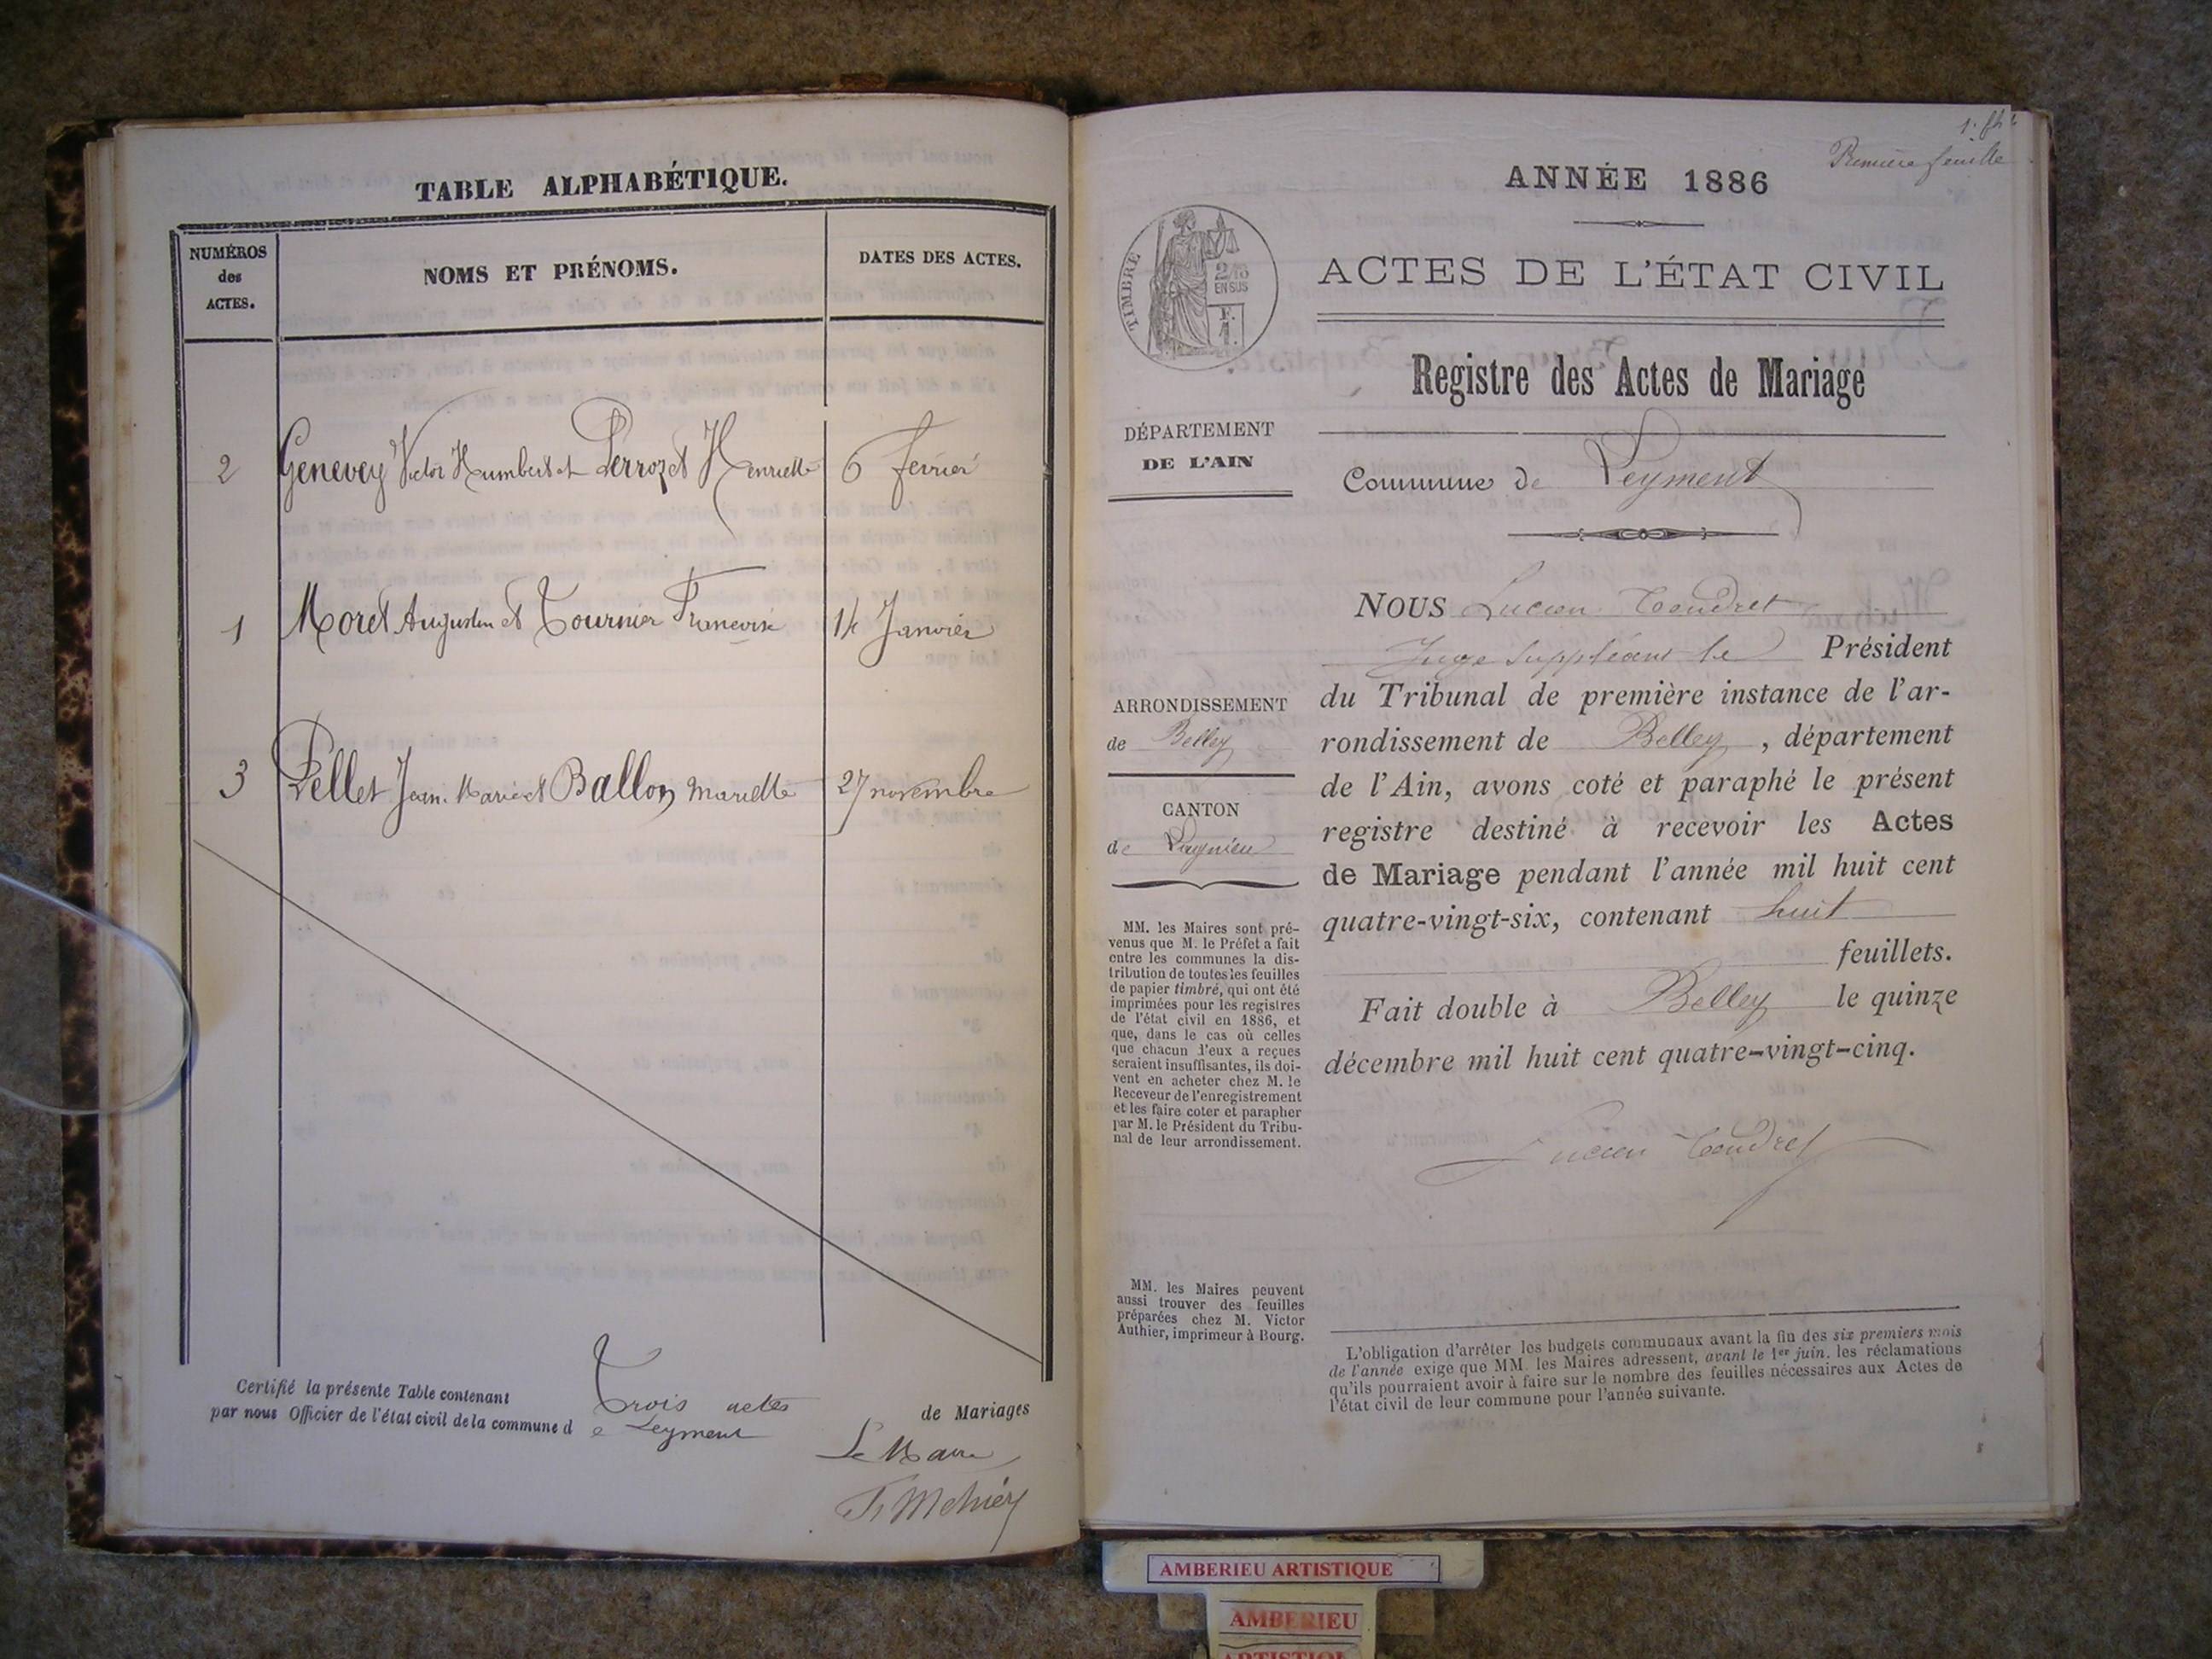 TABLE ALPHABÉTIQUE.
NUMÉROS
des
ACTES.
NOMS ET PRÉNOMS.
DATES DES ACTES.
2 Genevey Victor Humbert et Perrozet Henriette 6 fevrier
1 Moret Augustin et Tournier Francoise 14 Janvier
3 Pellet Jean Marie et Ballon Mariette 27 novembre
Certifié la présente Table contenant Trois actes de Mariages
par nous Officier de l'état civil de la commune de Leyment
Le Maire
1er ft
Première feuille
ANNÉE 1886
ACTES DE L'ÉTAT CIVIL
TIMBRE
2/10
EN SUS
Registre des Actes de Mariage
DÉPARTEMENT
DE L'AIN
Commune de Leyment
ARRONDISSEMENT
de Belley
CANTON
de Lagnieu
MM. les Maires sont pré-
venus que M. le Préfet a fait
entre les communes la dis-
tribution de toutes les feuilles
de papier timbré, qui ont été
imprimées pour les registres
de l'état civil en 1886, et
que, dans le cas où celles
que chacun d'eux a reçues
seraient insuffisantes, ils doi-
vent en acheter chez M. le
Receveur de l'enregistrement
et les faire coter et parapher
par M. le Président du Tribu-
nal de leur arrondissement.
MM. les Maires peuvent
aussi trouver des feuilles
préparées chez M. Victor
Authier, imprimeur à Bourg.
NOUS Lucien Coudret
Juge Suppléant le Président
du Tribunal de première instance de l'ar-
rondissement de Belley, département
de l'Ain, avons coté et paraphé le présent
registre destiné à recevoir les Actes
de Mariage pendant l'année mil huit cent
quatre-vingt-six, contenant huit
feuillets.
Fait double à Belley le quinze
décembre mil huit cent quatre-vingt-cinq.
Lucien Coudret
L'obligation d'arrêter les budgets communaux avant la fin des six premiers mois
de l'année exige que MM. les Maires adressent, avant le 1er juin. les réclamations
qu'ils pourraient avoir à faire sur le nombre des feuilles nécessaires aux Actes de
l'état civil de leur commune pour l'année suivante.
AMBERIEU ARTISTIQUE
AMBERIEU